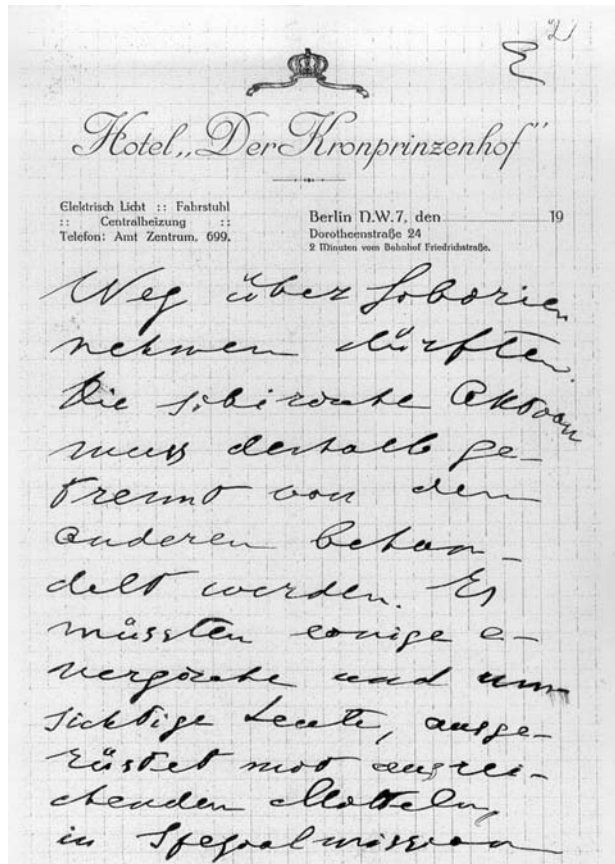 Hotel „Der Kronprinzenhof"
Elektrisch Licht :: Fahrstuhl
:: Centralheizung ::
Telefon: Amt Zentrum, 699.
Berlin N.W.7, den 19
Dorotheenstraße 24
2 Minuten vom Bahnhof Friedrichstraße.
Weg über Sibirien
nehmen dürften.
Die sibirische Aktion
muss deshalb ge-
trennt von den
anderen behan-
delt werden. Es
müssten einige e-
nergische und um
sichtige Leute, ausge-
rüstet mit ausrei-
chenden Mitteln,
in Spezialmission